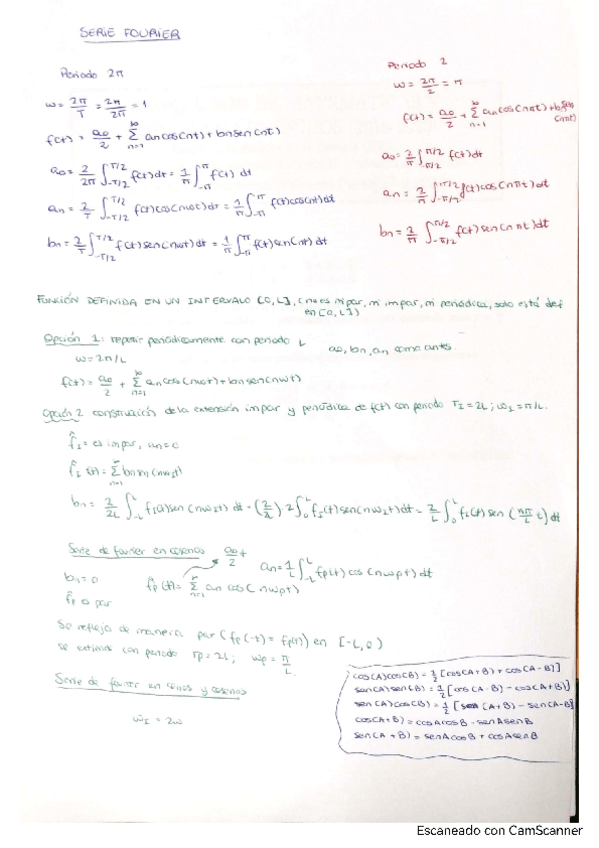 SERIE FOURIER
Periodo 2π
ω = 2π/T = 2π/2π = 1
f(t) = a0/2 + ∞Σn=1 an cos(nt) + bn sen(nt)
a0 = 2/2π ∫-T/2^T/2 f(t) dt = 1/π ∫-π^π f(t) dt
an = 2/T ∫-T/2^T/2 f(t) cos(nωt) dt = 1/π ∫-π^π f(t) cos(nt) dt
bn = 2/T ∫-T/2^T/2 f(t) sen(nωt) dt = 1/π ∫-π^π f(t) sen(nt) dt
Periodo 2
ω = 2π/2 = π
f(t) = a0/2 + ∞Σn=1 an cos(nπt) + bn sen(nπt)
a0 = 2/π ∫-π/2^π/2 f(t) dt
an = 2/π ∫-π/2^π/2 f(t) cos(nπt) dt
bn = 2/π ∫-π/2^π/2 f(t) sen(nπt) dt
FUNCIÓN DEFINIDA EN UN INTERVALO [0, L], (no es ni par, ni impar, ni periódica, solo está def
en [0, L])
Opción 1: repetir periódicamente con periodo L
a0, bn, an como antes.
ω = 2π/L
f(t) = a0/2 + ∞Σn=1 an cos(nωt) + bn sen(nωt)
Opción 2 construcción de la extensión impar y periódica de f(t) con periodo TI = 2L; ωI = π/L.
f̂I = es impar, an = 0
f̂I (t) = ∞Σn=1 bn sin(nωIt)
bn = 2/2L ∫-L^L fI(t) sen(nωIt) dt = (2/2L) · 2∫0^L fI(t) sen(nωIt) dt = 2/L ∫0^L fI(t) sen (nπ/L t) dt
Serie de fourier en cosenos
a0/2 +
bn = 0
f̂p (t) = ∞Σn=1 an cos (nωpt)
an = 1/L ∫-L^L fp(t) cos (nωpt) dt
f̂p es par
Se refleja de manera par (fp(-t) = fp(t)) en [-L, 0)
se extiende con periodo Tp = 2L; ωp = π/L.
Serie de fourier en senos y cosenos
ωI = 2ω
cos(A)cos(B) = 1/2 [cos(A+B) + cos(A-B)]
sen(A)sen(B) = 1/2 [cos(A-B) - cos(A+B)]
sen(A)cos(B) = 1/2 [sen (A+B) - sen(A-B)]
cos(A+B) = cosAcosB - senAsenB
sen(A+B) = senAcosB + cosAsenB
Escaneado con CamScanner